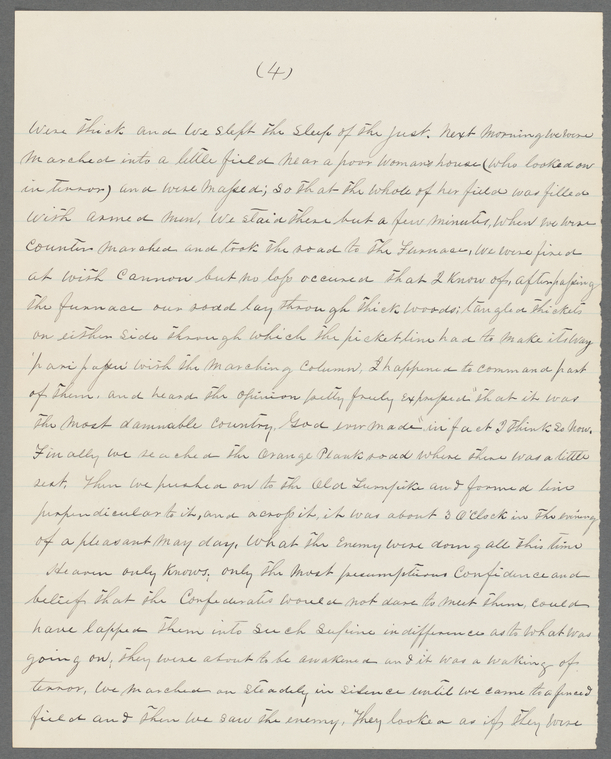 (4)
were thick and we slept the sleep of the just. Next morning we were
marched into a little field near a poor womans house (who looked on
in terror) and were massed; so that the whole of her field was filled
with armed men. We staid there but a few minutes, when we were
counter marched and took the road to the Furnace, we were fired
at with cannon but no loss occured that I know of, after passing
the furnace our road lay through thick woods; tangled thickets
on either side through which the picket line had to make its way
'pari passu' with the marching column, I happened to command part
of them, and heard the opinion pretty freely expressed "that it was
the most damnable country God ever made" in fact I think so now.
Finally we reached the Orange Plank road where there was a little
rest, then we pushed on to the Old Turnpike and formed line
perpendicular to it, and across it, it was about 3 O'Clock in the evening
of a pleasant May day. What the Enemy were doing all this time
Heaven only knows, only the most presumptious confidence and
belief that the Confederates would not dare to meet them, could
have lapped them into such supine indifference as to what was
going on, they were about to be awakened and it was a waking of
terror, we marched on steadily in silence until we came to a fenced
field and then we saw the enemy, they looked as if they were